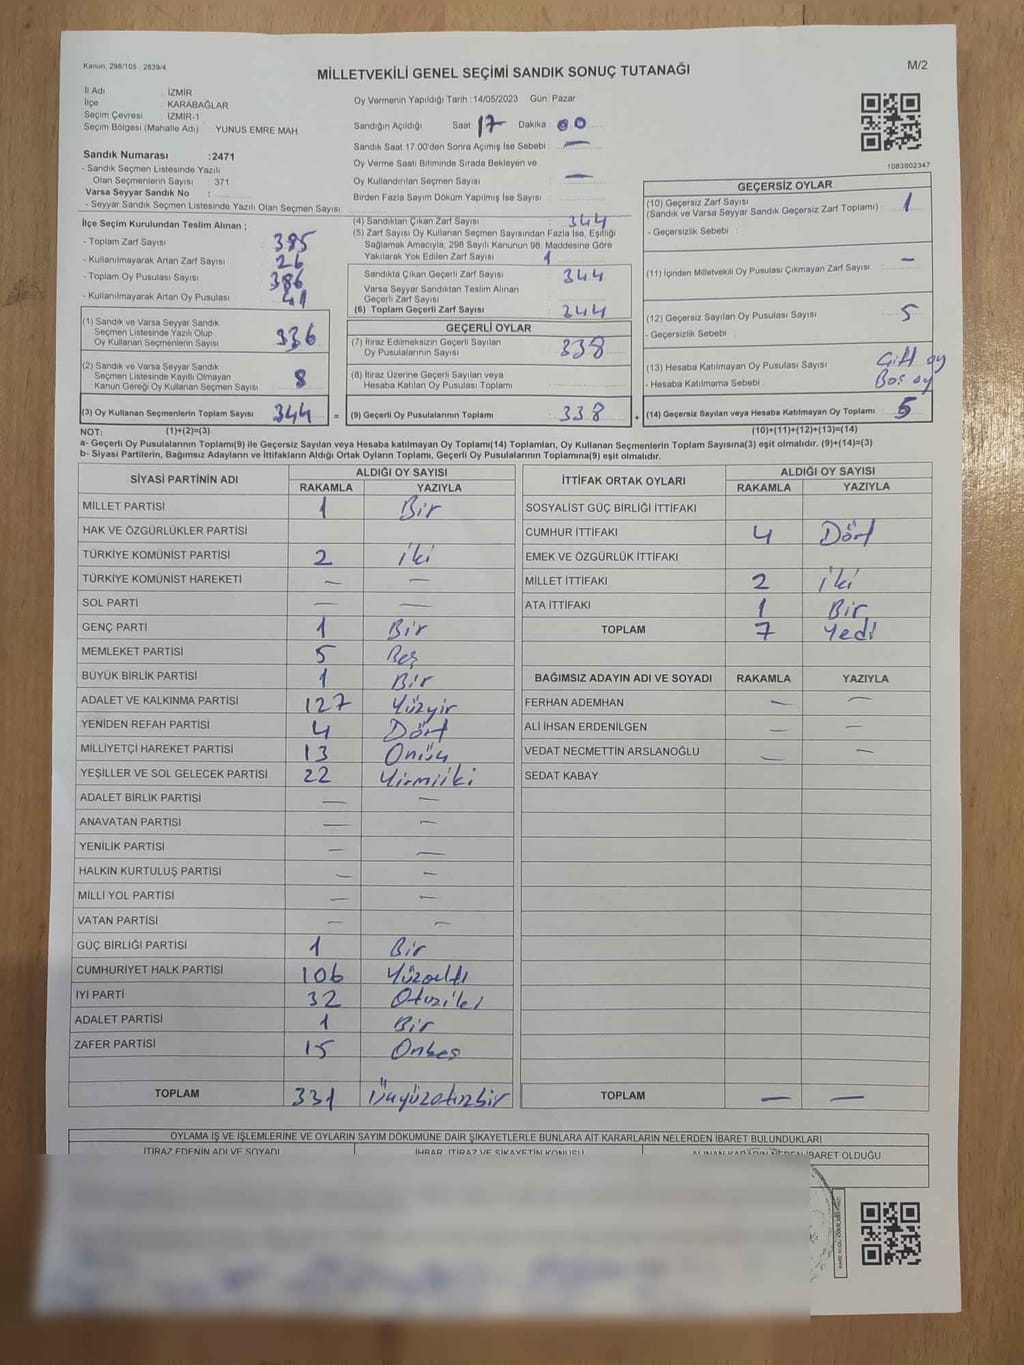 Kanun: 298/105 , 2839/4
MİLLETVEKİLİ GENEL SEÇİMİ SANDIK SONUÇ TUTANAĞI
M/2
İl Adı : İZMİR
İlçe : KARABAĞLAR
Seçim Çevresi : İZMİR-1
Seçim Bölgesi (Mahalle Adı) : YUNUS EMRE MAH
Sandık Numarası :2471
- Sandık Seçmen Listesinde Yazılı
Olan Seçmenlerin Sayısı : 371
Varsa Seyyar Sandık No :
- Seyyar Sandık Seçmen Listesinde Yazılı Olan Seçmen Sayısı:
Oy Vermenin Yapıldığı Tarih :14/05/2023 Gün: Pazar
Sandığın Açıldığı Saat 17 Dakika 00
Sandık Saat 17:00'den Sonra Açımış İse Sebebi : —
Oy Verme Saati Bitiminde Sırada Bekleyen ve
Oy Kullandırılan Seçmen Sayısı : —
Birden Fazla Sayım Döküm Yapılmış İse Sayısı :
1083802347
İlçe Seçim Kurulundan Teslim Alınan ;
- Toplam Zarf Sayısı : 385
- Kullanılmayarak Artan Zarf Sayısı : 26
- Toplam Oy Pusulası Sayısı : 386
- Kullanılmayarak Artan Oy Pusulası : 41
(1) Sandık ve Varsa Seyyar Sandık
Seçmen Listesinde Yazılı Olup
Oy Kullanan Seçmenlerin Sayısı 336
(2) Sandık ve Varsa Seyyar Sandık
Seçmen Listesinde Kayıtlı Olmayan
Kanun Gereği Oy Kullanan Seçmen Sayısı 8
(3) Oy Kullanan Seçmenlerin Toplam Sayısı 344 =
(4) Sandıktan Çıkan Zarf Sayısı : 344
(5) Zarf Sayısı Oy Kullanan Seçmen Sayısından Fazla İse, Eşitliği
Sağlamak Amacıyla, 298 Sayılı Kanunun 98. Maddesine Göre
Yakılarak Yok Edilen Zarf Sayısı : 1
Sandıkta Çıkan Geçerli Zarf Sayısı : 344
Varsa Seyyar Sandıktan Teslim Alınan
Geçerli Zarf Sayısı
(6) Toplam Geçerli Zarf Sayısı : 344
GEÇERLİ OYLAR
(7) İtiraz Edilmeksizin Geçerli Sayılan
Oy Pusulalarının Sayısı : 338
(8) İtiraz Üzerine Geçerli Sayılan veya
Hesaba Katılan Oy Pusulası Toplamı :
(9) Geçerli Oy Pusulalarının Toplamı : 338 +
GEÇERSİZ OYLAR
(10) Geçersiz Zarf Sayısı
(Sandık ve Varsa Seyyar Sandık Geçersiz Zarf Toplamı) : 1
- Geçersizlik Sebebi :
(11) İçinden Milletvekili Oy Pusulası Çıkmayan Zarf Sayısı : —
(12) Geçersiz Sayılan Oy Pusulası Sayısı : 5
- Geçersizlik Sebebi :
(13) Hesaba Katılmayan Oy Pusulası Sayısı : Çift oy
- Hesaba Katılmama Sebebi : Boş oy
(14) Geçersiz Sayılan veya Hesaba Katılmayan Oy Toplamı : 5
NOT: (1)+(2)=(3) (10)+(11)+(12)+(13)=(14)
a- Geçerli Oy Pusulalarının Toplamı(9) ile Geçersiz Sayılan veya Hesaba katılmayan Oy Toplamı(14) Toplamları, Oy Kullanan Seçmenlerin Toplam Sayısına(3) eşit olmalıdır. (9)+(14)=(3)
b- Siyasi Partilerin, Bağımsız Adayların ve İttifakların Aldığı Ortak Oyların Toplamı, Geçerli Oy Pusulalarının Toplamına(9) eşit olmalıdır.
SİYASİ PARTİNİN ADI ALDIĞI OY SAYISI
RAKAMLA YAZIYLA
MİLLET PARTİSİ 1 Bir
HAK VE ÖZGÜRLÜKLER PARTİSİ
TÜRKİYE KOMÜNİST PARTİSİ 2 iki
TÜRKİYE KOMÜNİST HAREKETİ — —
SOL PARTİ — —
GENÇ PARTİ 1 Bir
MEMLEKET PARTİSİ 5 Beş
BÜYÜK BİRLİK PARTİSİ 1 Bir
ADALET VE KALKINMA PARTİSİ 127 Yüzyir
YENİDEN REFAH PARTİSİ 4 Dört
MİLLİYETÇİ HAREKET PARTİSİ 13 Onüç
YEŞİLLER VE SOL GELECEK PARTİSİ 22 Yirmiiki
ADALET BİRLİK PARTİSİ — —
ANAVATAN PARTİSİ — —
YENİLİK PARTİSİ — —
HALKIN KURTULUŞ PARTİSİ — —
MİLLİ YOL PARTİSİ — —
VATAN PARTİSİ — —
GÜÇ BİRLİĞİ PARTİSİ 1 Bir
CUMHURİYET HALK PARTİSİ 106 Yüzaltı
İYİ PARTİ 32 Otuziki
ADALET PARTİSİ 1 Bir
ZAFER PARTİSİ 15 Onbeş
TOPLAM 331 Üçyüzotuzbir
İTTİFAK ORTAK OYLARI ALDIĞI OY SAYISI
RAKAMLA YAZIYLA
SOSYALİST GÜÇ BİRLİĞİ İTTİFAKI
CUMHUR İTTİFAKI 4 Dört
EMEK VE ÖZGÜRLÜK İTTİFAKI
MİLLET İTTİFAKI 2 iki
ATA İTTİFAKI 1 Bir
TOPLAM 7 Yedi
BAĞIMSIZ ADAYIN ADI VE SOYADI RAKAMLA YAZIYLA
FERHAN ADEMHAN — —
ALİ İHSAN ERDENİLGEN — —
VEDAT NECMETTİN ARSLANOĞLU — —
SEDAT KABAY
TOPLAM — —
OYLAMA İŞ VE İŞLEMLERİNE VE OYLARIN SAYIM DÖKÜMÜNE DAİR ŞİKAYETLERLE BUNLARA AİT KARARLARIN NELERDEN İBARET BULUNDUKLARI
İTİRAZ EDENİN ADI VE SOYADI İHBAR, İTİRAZ VE ŞİKAYETİN KONUSU ALINAN KARARIN NEDEN İBARET OLDUĞU